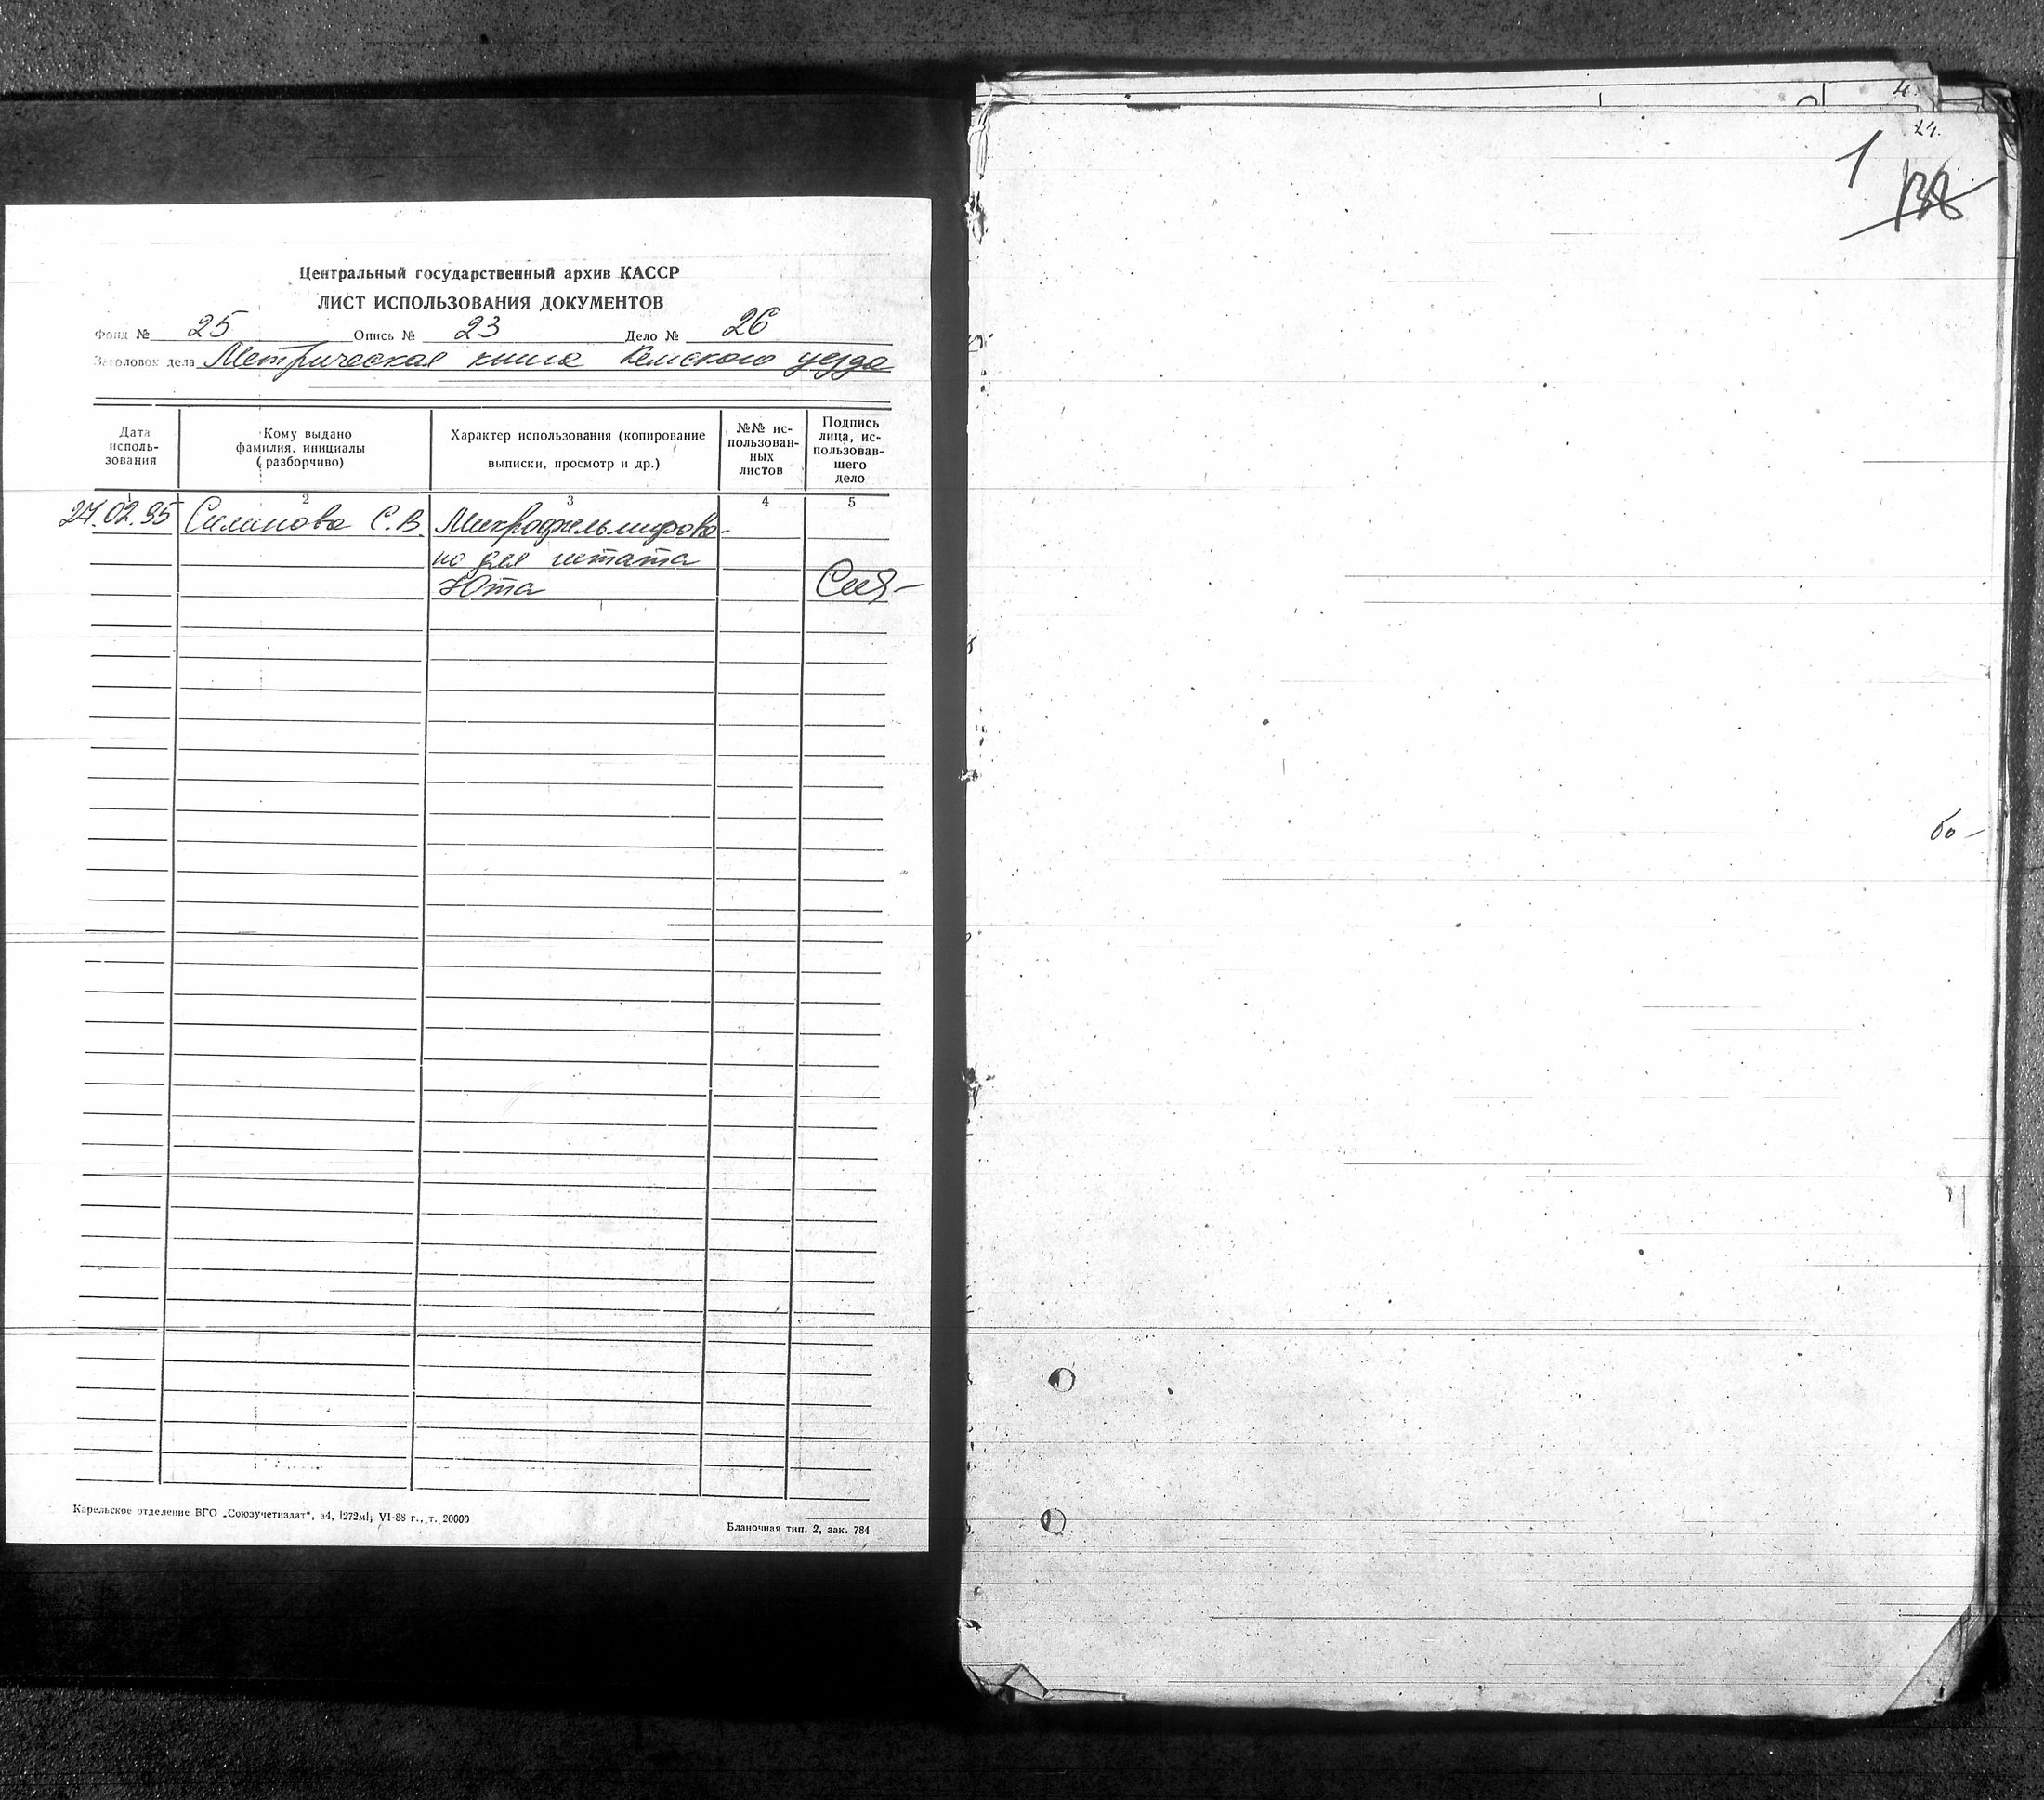 Центральный государственный архив КАССР
ЛИСТ ИСПОЛЬЗОВАНИЯ ДОКУМЕНТОВ
Фонд № 25 Опись № 23 Дело № 26
Заголовок дела Метрическая книга Кемского уезда
Дата исполь-
зования
Кому выдано
фамилия, инициалы
(разборчиво)
Характер использования (копирование
выписки, просмотр и др.)
№№ ис-
пользован-
ных
листов
Подпись
лица, ис-
пользовав-
шего
дело
2 3 4 5
27.02.95 Силинова С.В. Микрофильмирова-
но для штата
Юта
Карельское отделение ВГО „Союзучетиздат", а4, [272м], VI-88 г., т. 20000
Бланочная тип. 2, зак. 784
4.
24.
1
138
бо-